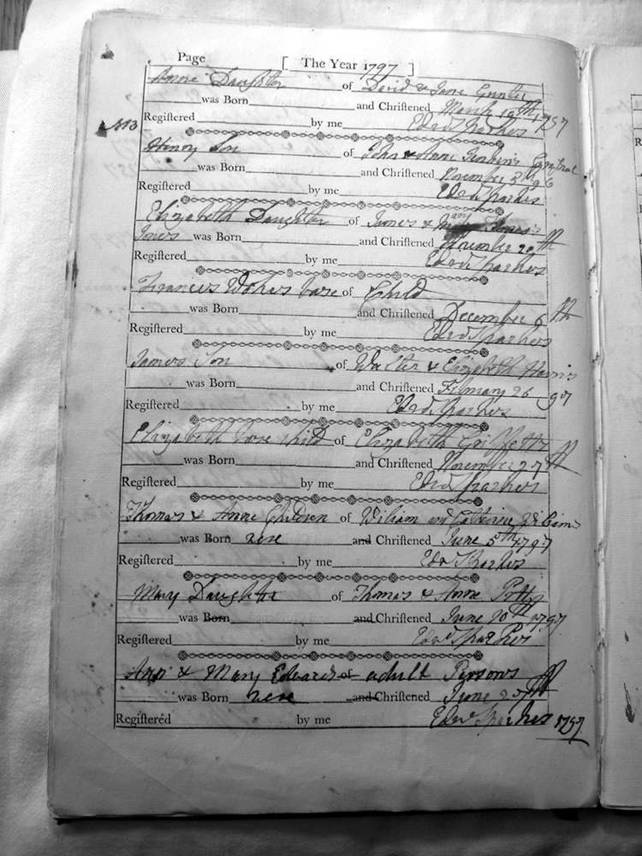 Page [ The Year 1797 ]
Anne Daughter of David & Jane
was Born and Christened March 19th 1797
Registered by me Edwd Sparkes
Henry Son of John & Anne Jenkins
was Born and Christened November 96
Registered by me Edwd Sparkes
Elizabeth Daughter of James & Mary
Jones was Born and Christened December th
Registered by me Edwd Sparkes
Frances base of Child
was Born and Christened December 6th
Registered by me Edwd Sparkes
James Son of Walter & Elizabeth Harris
was Born and Christened February 26 97
Registered by me Edwd Sparkes
Elizabeth base child of Elizabeth Griffiths
was Born and Christened November 27th
Registered by me Edwd Sparkes
Thomas & Anne Children of William and Catherine
was Born were and Christened June 5th 1797
Registered by me Edwd Sparkes
Mary Daughter of Thomas & Anne
was Born and Christened June 20th 1797
Registered by me Edwd Sparkes
Ann & Mary Edwards of adult Persons
was Born were and Christened June th
Registered by me Edwd Sparkes 1797